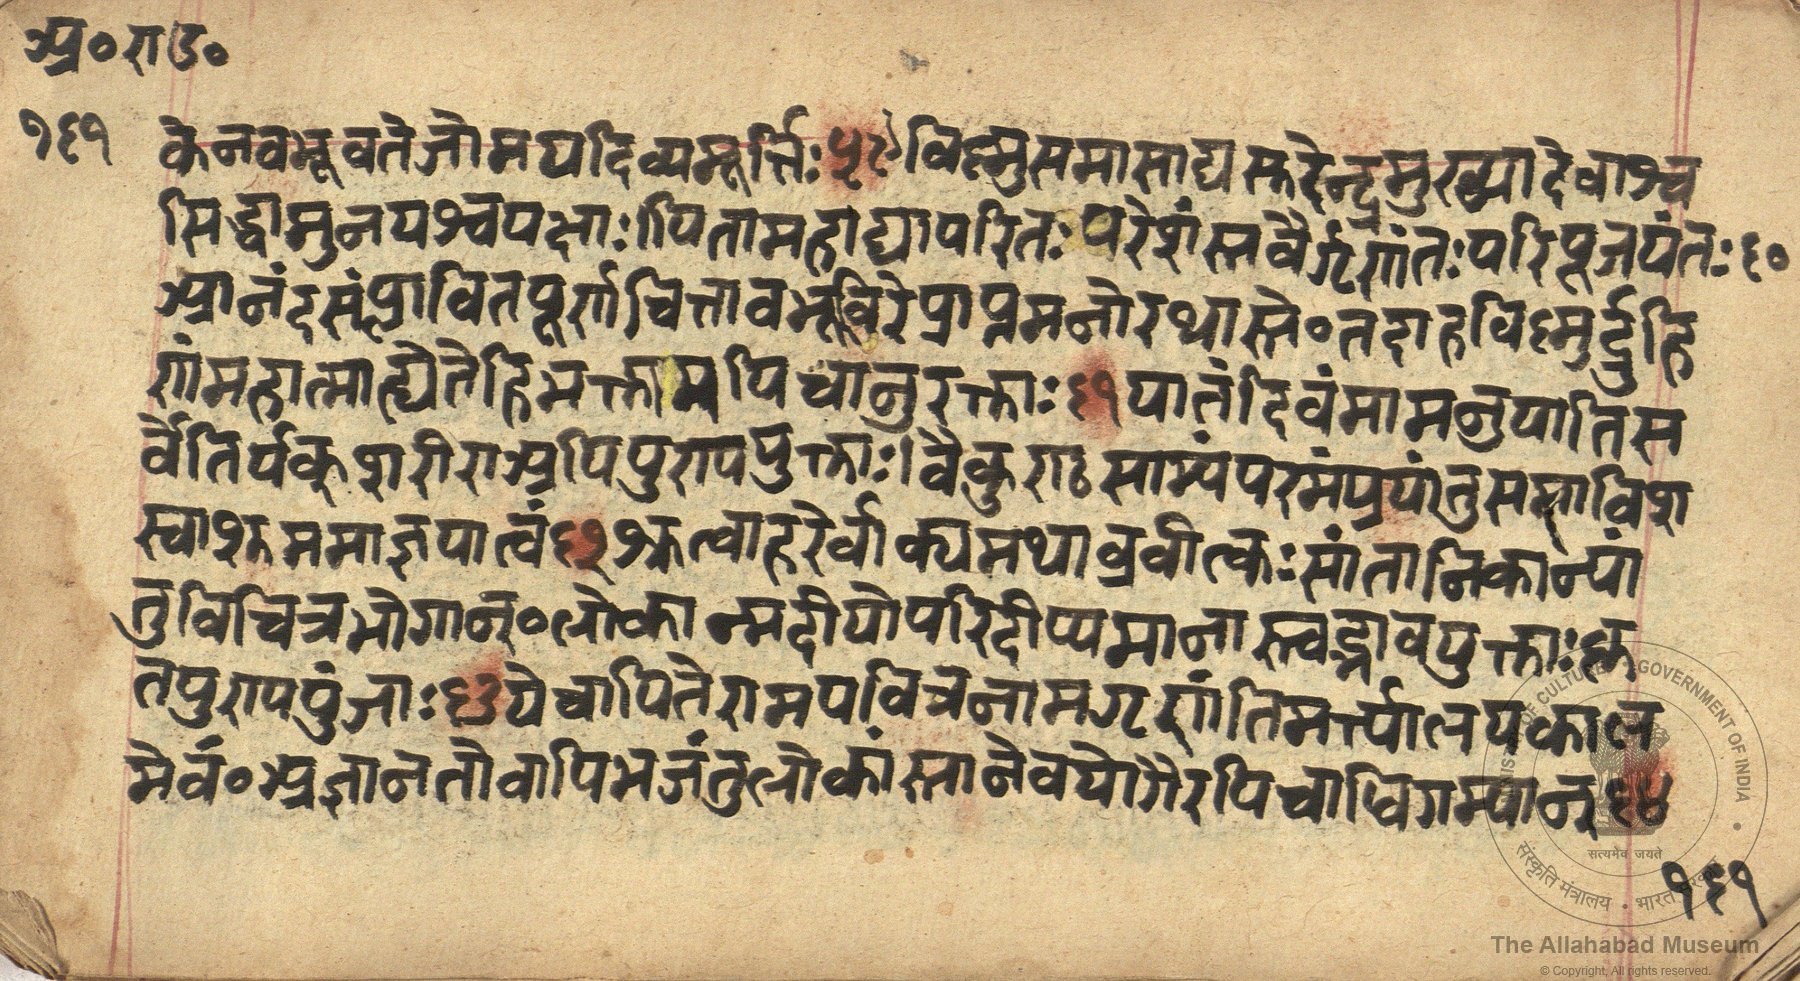 अ॰रा॰उ॰
१६१
केनबभूवतेजोमयदिव्यमूर्त्तिः ५९ विष्णुसमासाद्य सुरेन्द्रमुख्या देवाश्च
सिद्धामुनयश्चयक्षाः।पितामहाद्यापरितः परेशंस्तवैर्गृणंतः परिपूजयंतः ६०
आनंदसंप्लावितपूर्णचित्ताबभूविरेप्राप्तमनोरथास्ते॰तदाहविष्णुर्द्रुहि
णंमहात्माह्येतेहिभक्तामपिचानुरक्ताः ६१ यातंदिवंमामनुयातिस
र्वेतिर्यक्शरीराअपिपुण्ययुक्ताः।वैकुण्ठसाम्यंपरमंप्रयांतुसमाविश
स्वाशुममाज्ञयात्वं ६२ श्रुत्वाहरेर्वाक्यमथाब्रवीत्कः सांतानिकान्यां
तुविचित्रभोगान्॰लोकान्मदीयोपरिदीप्यमानास्त्वद्भावयुक्ताः कृ
तपुण्यपुंजाः ६३ येचापितेरामपवित्रनामगृणंतिमर्त्त्यालयकाल
मेवं॰अज्ञानतोवापिभजंतुलोकांस्तानेवयोगैरपिचाधिगम्यान् ६४
१६१
संस्कृति मंत्रालय • भारत सरकार
MINISTRY OF CULTURE • GOVERNMENT OF INDIA
सत्यमेव जयते
The Allahabad Museum
© Copyright, All rights reserved.